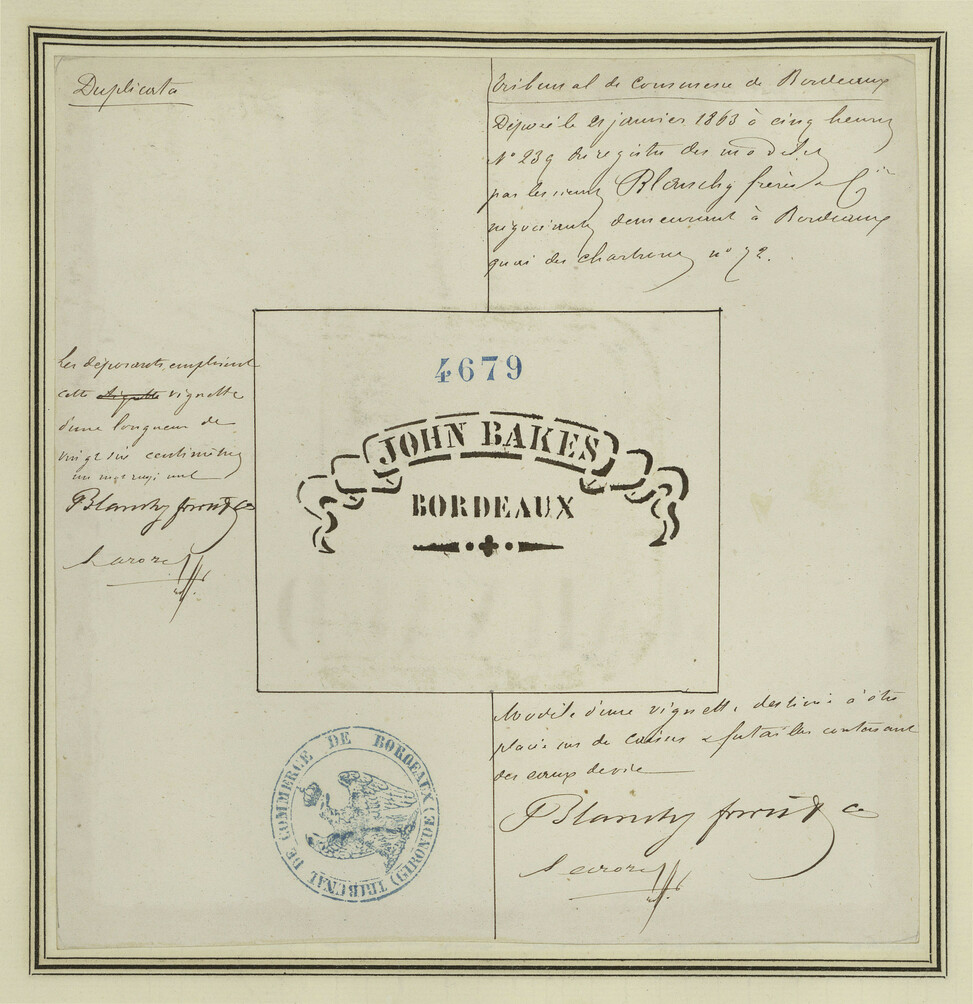 Duplicata
Tribunal de Commerce de Bordeaux
Déposé le 21 janvier 1863 à cinq heures
N° 239 du registre des modèles
par les sieurs Blanchy frères & Cie
négociants demeurant à Bordeaux
quai des chartrons n° 72.
4679
JOHN BAKES
BORDEAUX
Les déposants emploient
cette vignette
d'une longueur de
vingt six centimètres
Blanchy frères & Co
Modèle d'une vignette destinée à être
placée sur de caisses & futailles contenant
des eaux de vie
Blanchy frères & Co
TRIBUNAL DE COMMERCE DE BORDEAUX (GIRONDE)